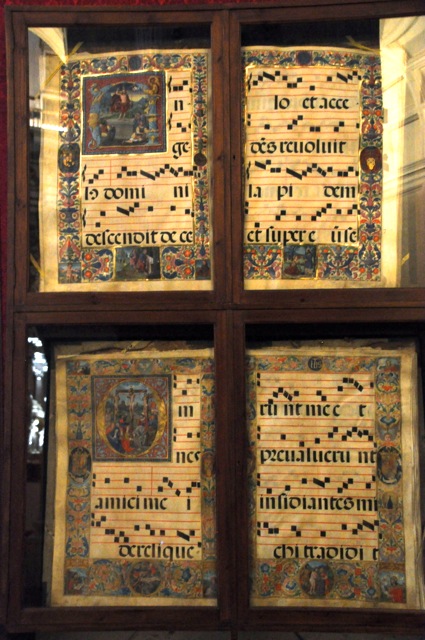 n
ge
lo domi ni
descendit de ce
lo et acce
dēs reuoluit
la pi dem
et super e
m
nes
amicime i
derelique
rūntmecet
preualuerunt
insidiantesmi
chi tradidit